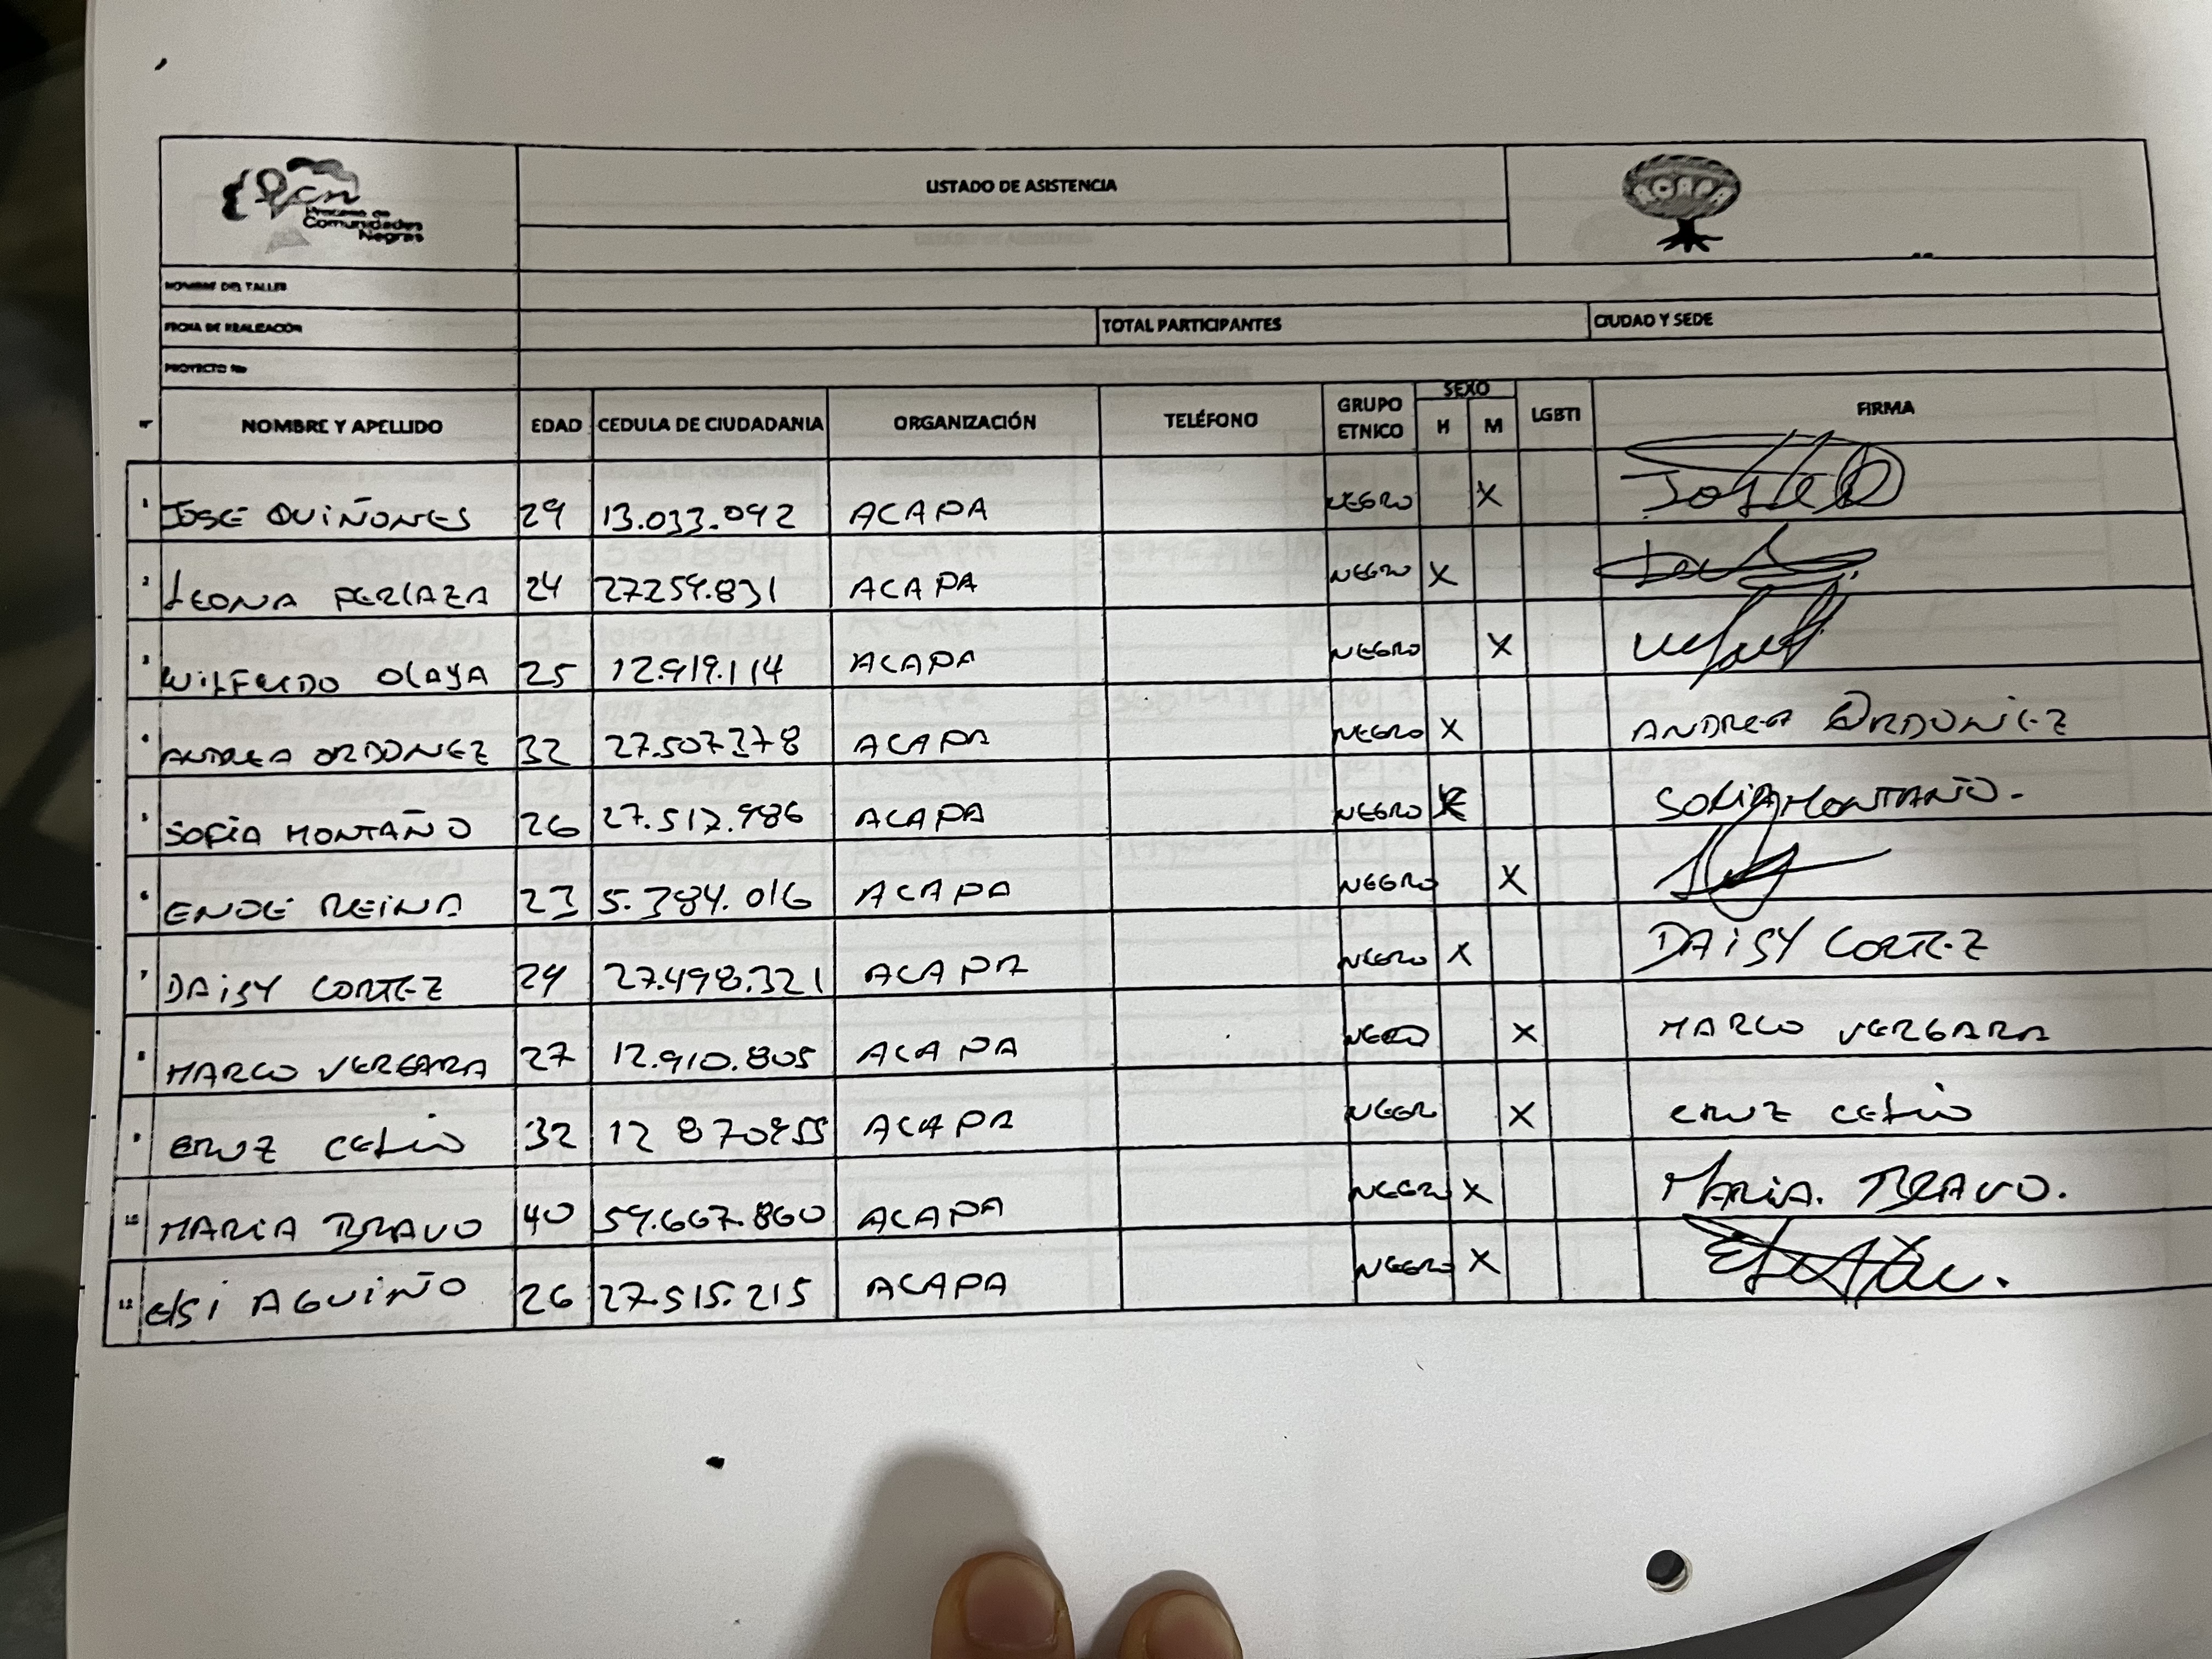 PCN
Proceso de
Comunidades
Negras
LISTADO DE ASISTENCIA
ACAPA
NOMBRE DEL TALLER
FECHA DE REALIZACIÓN TOTAL PARTICIPANTES CIUDAD Y SEDE
PROYECTO No
NOMBRE Y APELLIDO EDAD CEDULA DE CIUDADANIA ORGANIZACIÓN TELÉFONO GRUPO ETNICO SEXO H M LGBTI FIRMA
1 JOSE QUIÑONES 29 13.033.092 ACAPA NEGRO X
2 LEONA PERLAZA 24 27259.831 ACAPA NEGRO X
3 WILFRIDO OLAYA 25 12.919.114 ACAPA NEGRO X
4 ANDREA ORDONEZ 32 27.507378 ACAPA NEGRO X ANDREA ORDONEZ
5 SOFIA MONTAÑO 26 27.517.986 ACAPA NEGRO X SOFIA MONTAÑO.
6 ENDE REINA 23 5.384.016 ACAPA NEGRO X
7 DAISY CORTEZ 29 27.498.321 ACAPA NEGRO X DAISY CORTEZ
8 MARCO VERGARA 27 12.910.805 ACAPA NEGRO X MARCO VERGARA
9 CRUZ CELIO 32 12 870955 ACAPA NEGR X CRUZ CELIO
10 MARIA BRAVO 40 59.667.860 ACAPA NEGRO X MARIA. BRAVO.
11 ELSI AGUIÑO 26 27.515.215 ACAPA NEGRO X